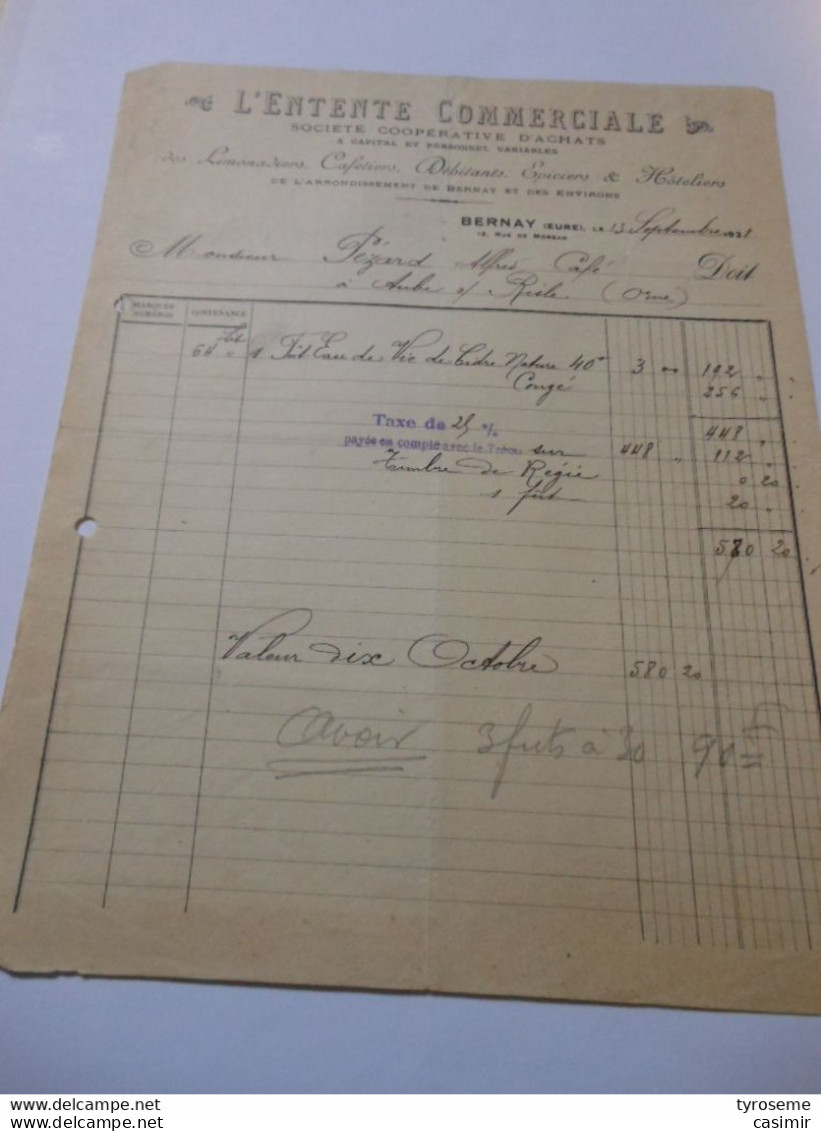 L'ENTENTE COMMERCIALE
SOCIÉTÉ COOPÉRATIVE D'ACHATS
A CAPITAL ET PERSONNEL VARIABLES
des Limonadiers, Cafetiers, Débitants, Epiciers & Hôteliers
DE L'ARRONDISSEMENT DE BERNAY ET DES ENVIRONS
BERNAY (EURE), LE 13 Septembre 1921
RUE DE MORSAN
Monsieur Pézard Alfred Café Doit
à Aube s/ Risle (Orne)
MARQUES NUMÉROS CONTENANCE
64 " 1 Fût Eau de Vie de Cidre Nature 40° 3 " 192 "
Congé 256 "
448 "
Taxe de 25 %
payée en compte avec le Trésor sur 448 " 112 "
Timbre de Régie 0 20
1 fût 20 "
580 20
Valeur dix Octobre 580 20
Avoir 3 futs à 30 90 =
tyroseme
https://www.delcampe.net casimir